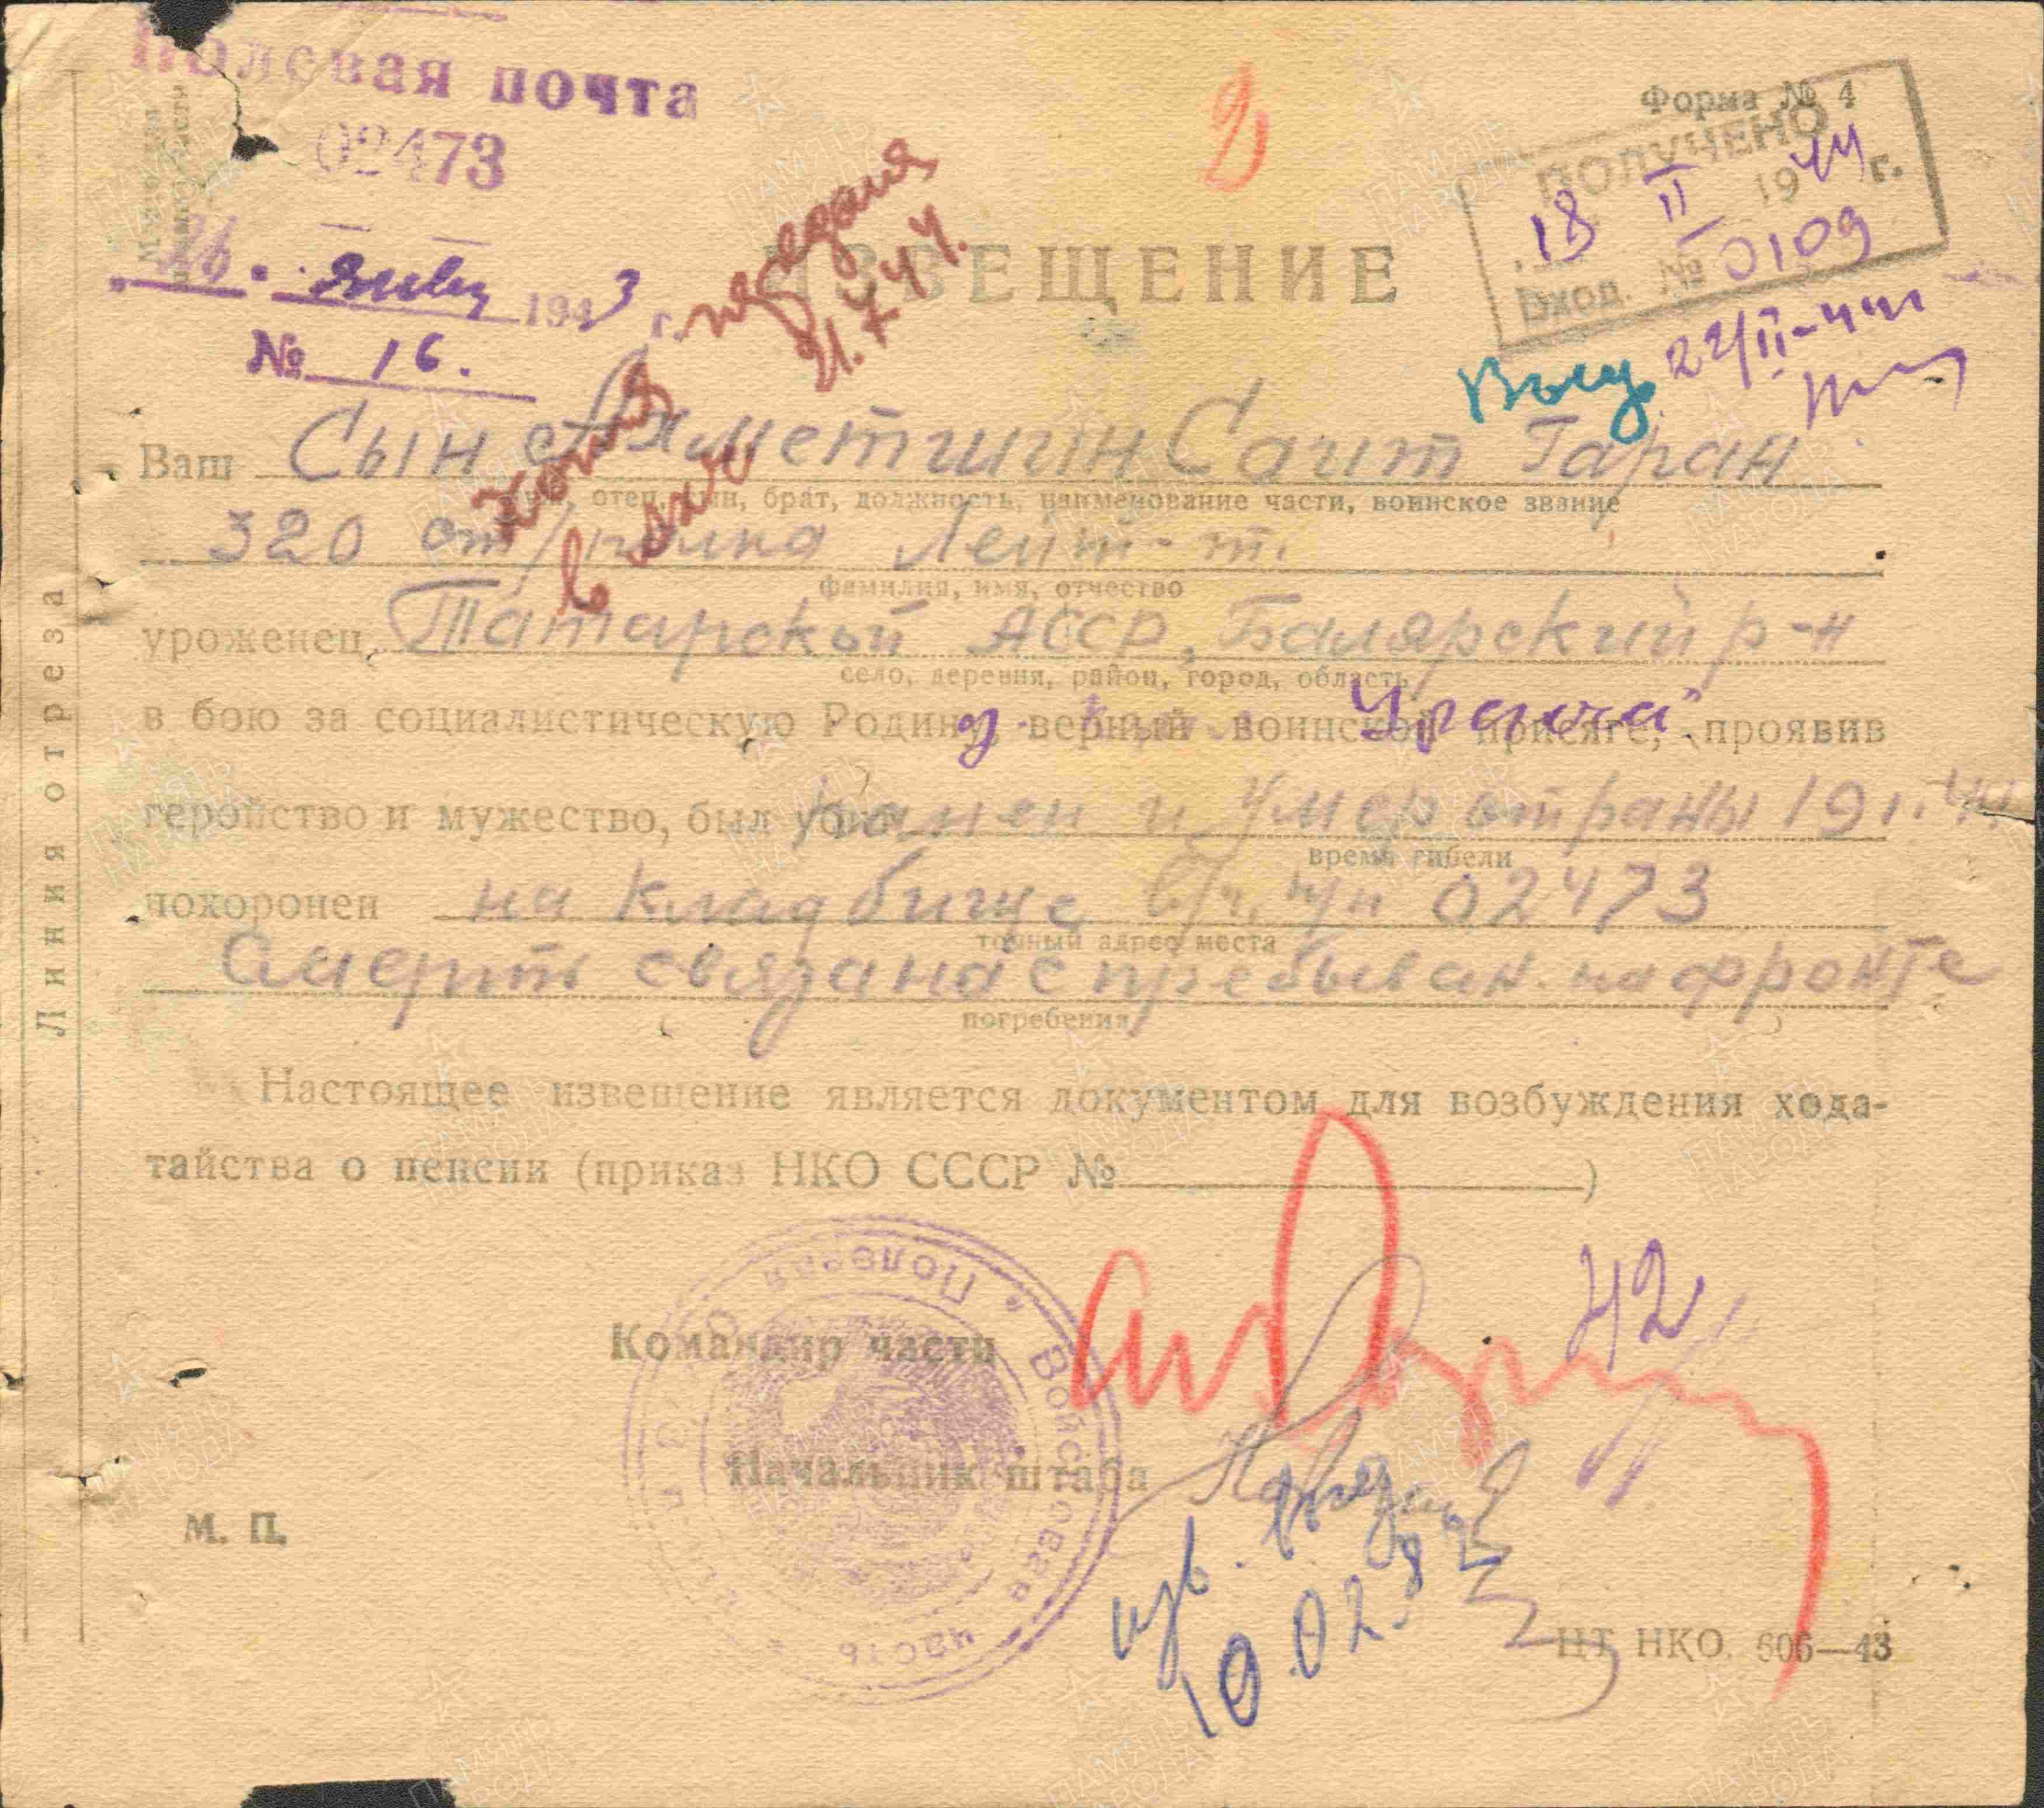 Полевая почта
02473
Форма № 4
ПОЛУЧЕНО
18 II 1944 г.
Вход. № 0109
"26" январ 1943 г.
№ 16.
передана
21.7.44.
ИЗВЕЩЕНИЕ
22/II-44
Ваш Сын Ахметшин Сагит Гаран
отец, сын, брат, должность, наименование части, воинское звание
копия
в
320 полка Лейт-т.
фамилия, имя, отчество
уроженец Татарской АССР, Балярский р-н
село, деревня, район, город, область
в бою за социалистическую Родину, верный воинской присяге, проявив
геройство и мужество, был убит ранен и умер от раны 19
время гибели
похоронен на кладбище в/ч. п/п 02473
точный адрес места
Смерть связана с пребыван. на фронте
погребения
Линия отреза
Настоящее извещение является документом для возбуждения хода-
тайства о пенсии (приказ НКО СССР № )
42
Командир части
Начальник штаба
Полевая
Войсковая часть
М. П.
10.02.
ЦТ НКО. 606—43
ПАМЯТЬ НАРОДА